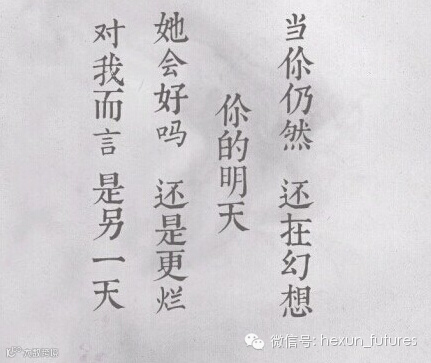 当你仍然 还在幻想
你的明天
她会好吗 还是更烂
对我而言 是另一天
微信号: hexun_futures